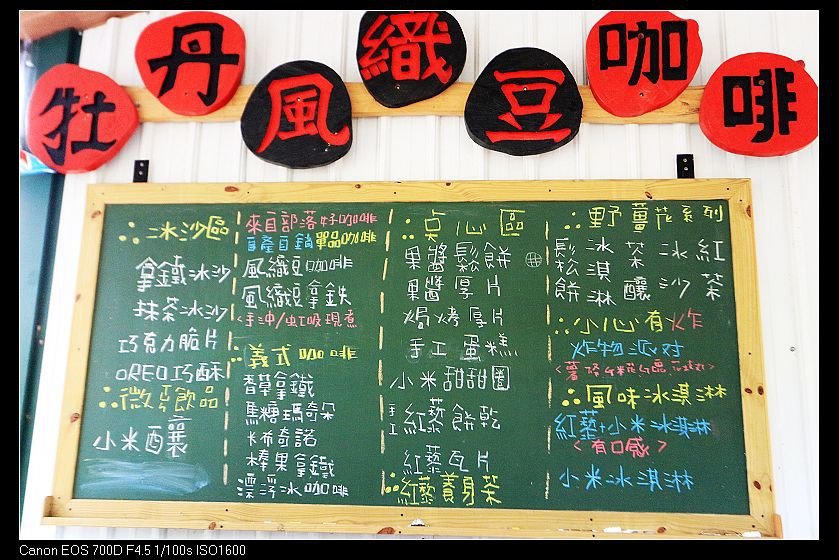 牡丹風織豆咖啡
冰沙區
拿鐵冰沙
抹茶冰沙
巧克力脆片
OREO巧酥
微醺飲品
小米釀
來自部落好咖啡
自產自銷單品咖啡
風織豆咖啡
風織豆拿鐵
<手沖/虹吸現煮
義式咖啡
香草拿鐵
焦糖瑪奇朵
卡希奇諾
榛果拿鐵
漂浮冰咖啡
点心區
果醬鬆餅
果醬厚片
焗烤厚片
手工蛋糕
小米甜甜圈
手工紅藜餅乾
紅藜瓦片
紅藜養身茶
野薑花系列
紅茶
冰沙
茶釀
冰淇淋
鬆餅
小心有炸
炸物派对
風味冰淇淋
紅藜+小米冰淇淋
<有口感>
小米冰淇淋
Canon EOS 700D F4.5 1/100s ISO1600